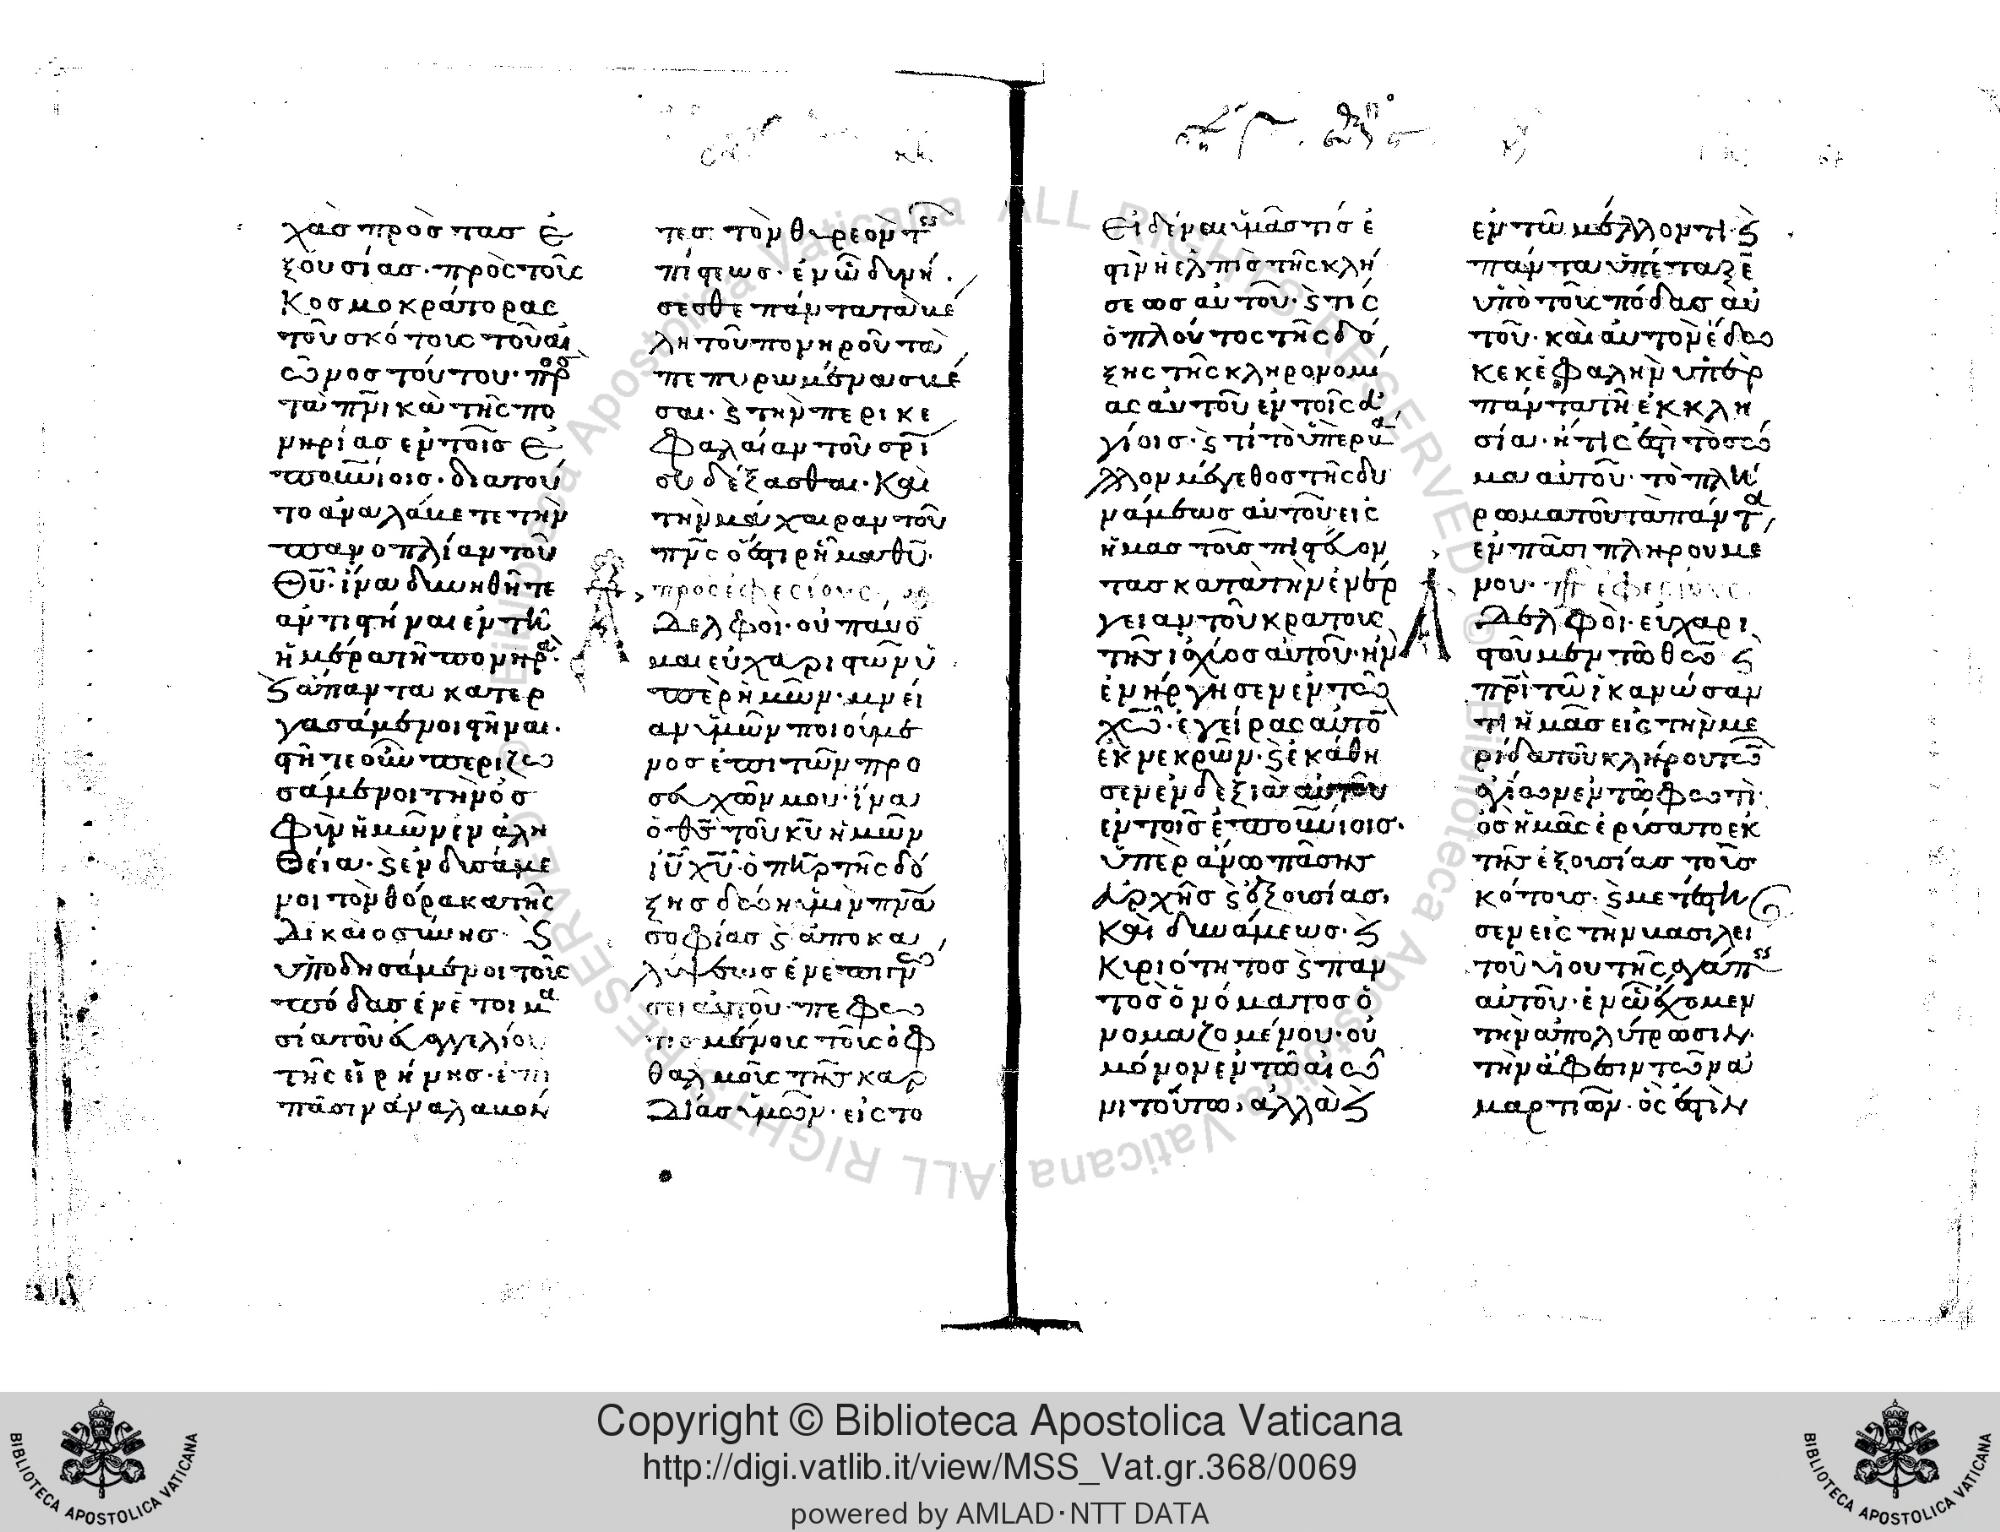 χὰσ πρὸσ τασ ἐ
ξουσίασ· πρὸς τοῖς
κοσμοκράτορας
τοῦ σκότους τοῦ αἰ
ῶνοσ τούτου· πρ
τὰ πνικὰ τῆς πο
νηρίασ ἐν τοῖσ ἐ
πουνίοισ· διατού
το ἀναλάβετε τὴν
πανοπλίαν τοῦ
Θυ· ἵνα δυνηθῆτε
ἀντιστῆναι ἐν τῆ
ἡμέρα τῆ πονηρα·
ϗ ἅπαντα κατερ
γασάμενοι στῆναι·
στῆτε οὖν περιζω
σάμενοι τὴν ὀσ
φὺν ἡμῶν ἐν ἀλη
θεία· ϗ ἐνδυσάμε
νοι τὸν θόρακα τῆς
δικαιοσύνησ· ϗ
ὑποδησάμενοι τοὺς
πόδασ ἐν ἑτοιμα
σία τοῦ εὐαγγελίου
τῆς εἰρήνησ· ἐπὶ
πᾶσιν ἀναλαβόν
τεσ τὸν θυρεὸν τησ
πίστεωσ· ἐν ὧ δυνή
σεσθε πάντα τὰ βέ
λη τοῦ πονηροῦ τὰ
πεπυρωμένα σβέ
σαι· ϗ τὴν περικε
φαλαίαν τοῦ σρι
ου δέξασθαι· Καὶ
τὴν μάχαιραν τοῦ
πνς ὅ ἐστι ρῆμα θυ·
προσ ἐφεσίους
Ἀδελφοί· οὐ παύο
μαι εὐχαριστῶν ὑ
πὲρ ἡμῶν· μνεί
αν ὑμῶν ποιούμε
νοσ ἐπὶ τῶν προ
σευχῶν μου· ἵνα
ὁ θσ τοῦ κυ ἡμῶν
ιυ χυ· ὁ πηρ τῆς δό
ξησ δώη ὑμῖν πνα
σοφίασ ϗ ἀποκα
λύψεωσ ἐν ἐπιγνω
σει αὐτοῦ· πεφω
τισμένοις τοῖς ὀφ
θαλμοῖς τῆς καρ
δίασ ὑμῶν· εἰς το
Εἰδέναι ὑμᾶσ τίσ ἐ
στιν ἡ ἐλπὶσ τῆς κλή
σεωσ αὐτοῦ· ϗ τίς
ὁ πλοῦτος τῆς δό
ξης τῆς κληρονομι
ας αὐτοῦ ἐν τοῖς ἁ
γίοισ· ϗ τί τὸ ὑπερβα
λλον μέγεθοσ τῆς δυ
νάμεωσ αὐτοῦ· εἰς
ἡμασ τοὺσ πιστεύον
τασ κατὰ τὴν ἐνέρ
γειαν τοῦ κράτους
τῆσ ἰσχύοσ αὐτοῦ· ἣν
ἐνήργησεν ἐν τῶ
χω· ἐγείρας αὐτὸ
ἐκ νεκρῶν· ϗ ἐκάθι
σεν ἐν δεξιᾶ αὐτοῦ
ἐν τοῖσ ἐπουνίοισ·
ὑπὲρ ἄνω πάσησ
Ἀρχῆσ ϗ ἐξουσίασ·
Καὶ δυνάμεωσ· ϗ
Κυριότητοσ ϗ παν
τοσ ὀνόματοσ ὀ
νομαζομένου· οὐ
μόνον ἐν τῶ αἰῶ
νι τούτω· ἀλλὰ ϗ
ἐν τῶ μέλλοντι· ϗ
πάντα ὑπέταξε
ὑπὸ τοὺς πόδασ αὐ
τοῦ· καὶ αὐτὸν ἔδω
κε κεφαλὴν ὑπὲρ
πάντα τῆ ἐκκλη
σία· ἥτις ἐστὶ τὸ σῶ
μα αὐτοῦ· τὸ πλή
ρωμα τοῦ τὰ πάντα
ἐν πᾶσι πληρουμέ
νου· πρ ἐφεσίους
Ἀδελφοὶ· εὐχαρι
στοῦμεν τῶ θεῶ ϗ
πρὶ τῶ ἱκανώσαν
τι ἡμᾶσ εἰς τὴν με
ρίδα τοῦ κλήρου τῶ
ἁγίων ἐν τῶ φωτί·
ὃσ ἡμᾶς ἐρύσατο ἐκ
τῆσ ἐξουσίασ τοῦ σ
κότουσ· ϗ μετέστη
σεν εἰς τὴν βασιλεί
τοῦ υἱοῦ τῆς ἀγάπησ
αὐτοῦ· ἐν ὧ ἔχομεν
τὴν ἀπολύτρωσιν·
τὴν ἄφεσιν τῶν ἁ
μαρτιῶν· ὅς ἐστὶν
Copyright © Biblioteca Apostolica Vaticana
http://digi.vatlib.it/view/MSS_Vat.gr.368/0069
powered by AMLAD·NTT DATA
BIBLIOTECA APOSTOLICA VATICANA
BIBLIOTECA APOSTOLICA VATICANA